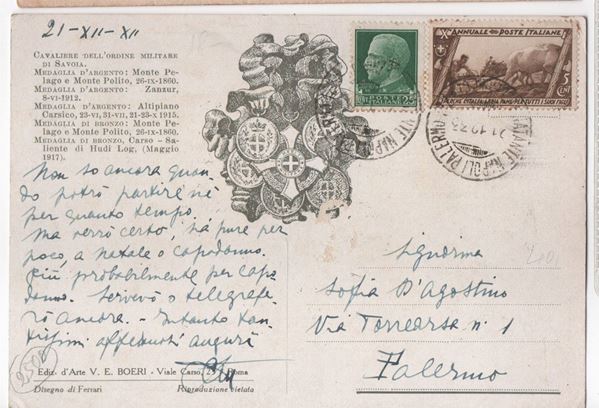 21-XII-XII
CAVALIERE DELL'ORDINE MILITARE
DI SAVOIA.
MEDAGLIA D'ARGENTO: Monte Pe-
lago e Monte Polito, 26-IX-1860.
MEDAGLIA D'ARGENTO: Zanzur,
8-VI-1912.
MEDAGLIA D'ARGENTO: Altipiano
Carsico, 23-VI, 31-VII, 21-23-X 1915.
MEDAGLIA DI BRONZO: Monte Pe-
lago e Monte Polito, 26-IX-1860.
MEDAGLIA DI BRONZO, Carso - Sa-
liente di Hudi Log, (Maggio
1917).
Non so ancora quan-
do potrò partire nè
per quanto tempo,
ma verrò certo, sia pure per
poco, a natale o capodanno.
Più probabilmente per capo
danno. Scriverò o telegrafe-
rò ancora. - Intanto tan-
tissimi affettuosi auguri
Ediz. d'Arte V. E. BOERI - Viale Carso, Roma
Disegno di Ferrari Riproduzione vietata
250
X ANNUALE POSTE ITALIANE
5 CENT
NAPOLI PALERMO
Signorina
Sofia D'Agostino
Via Torrearsa n. 1
Palermo